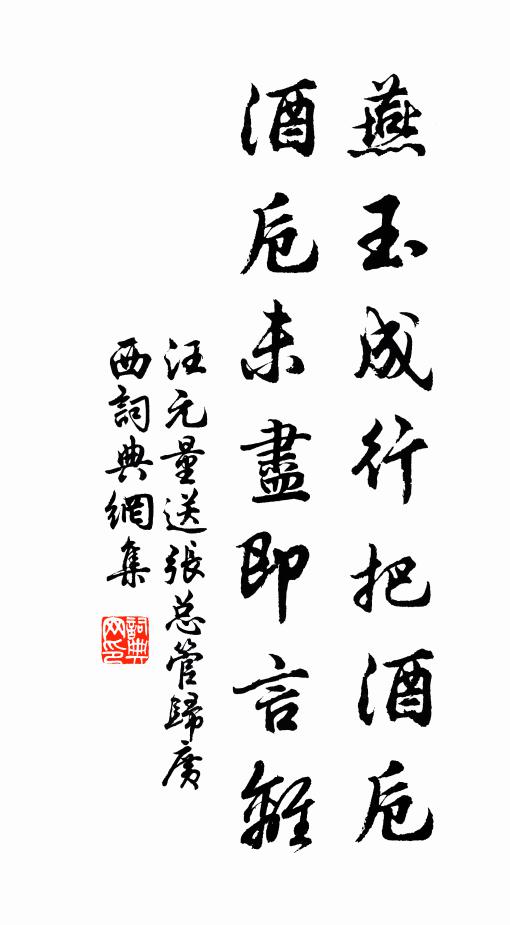 燕玉成行把酒卮
酒卮未盡即言離
汪元量送張总管歸廣
西詞典網集
詞典网印